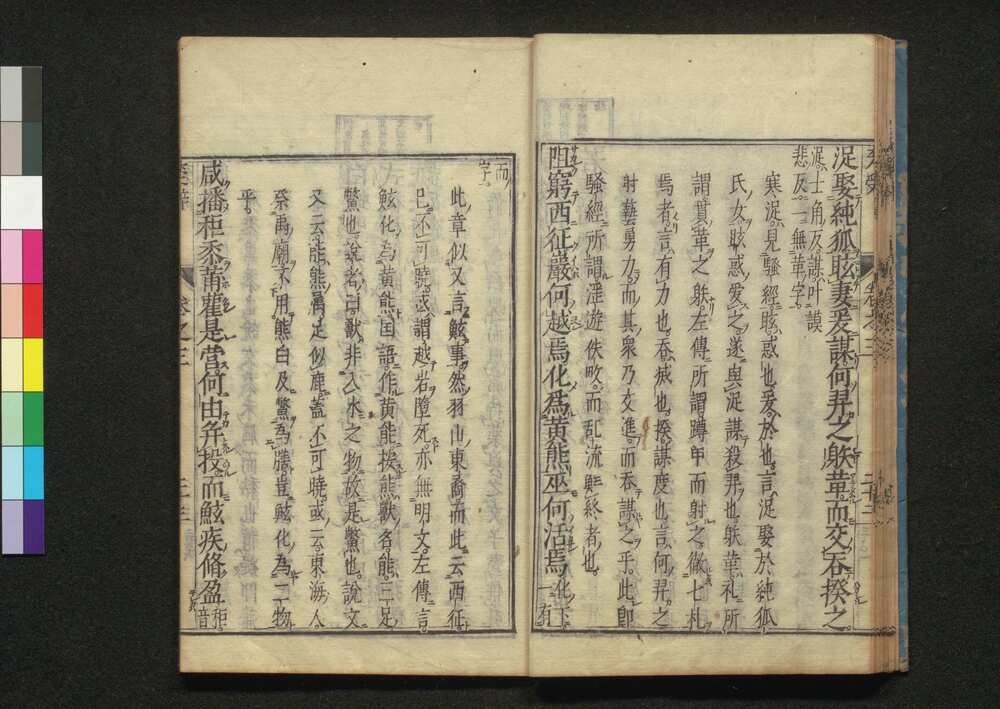 浞娶純狐眩妻爰謀何羿之䠶革而交吞揆之
浞士角反謀叶謨
悲反一無革字
寒浞見騷經眩惑也爰於也言浞娶於純狐
氏女眩惑愛之遂與浞謀殺羿也䠶革禮所
謂貫革之䠶左傳所謂蹲甲而射之徹七札
焉者言有力也吞滅也揆謀度也言何羿之
射藝勇力而其衆乃交進而吞謀之乎此即
騷經所謂淫遊佚畋而乱流鮮終者也
阻窮西征巖何越焉化爲黄熊巫何活焉化下
一有
而
字
此章似又言鮌事然羽山東裔而此云西征
已不可曉或謂越岩墮死亦無明文左傳言
鮌化為黄熊国語作黄能按熊獸名能三足
鱉也說者曰獸非入水之物故是鱉也說文
又云能熊屬足似鹿蓋不可曉或云東海人
祭禹廟不用熊白及鱉為膳豈鮌化為二物
乎
咸播秬黍莆雚是營何由并投而鮌疾脩盈
秬
音
楚辞
卷之三